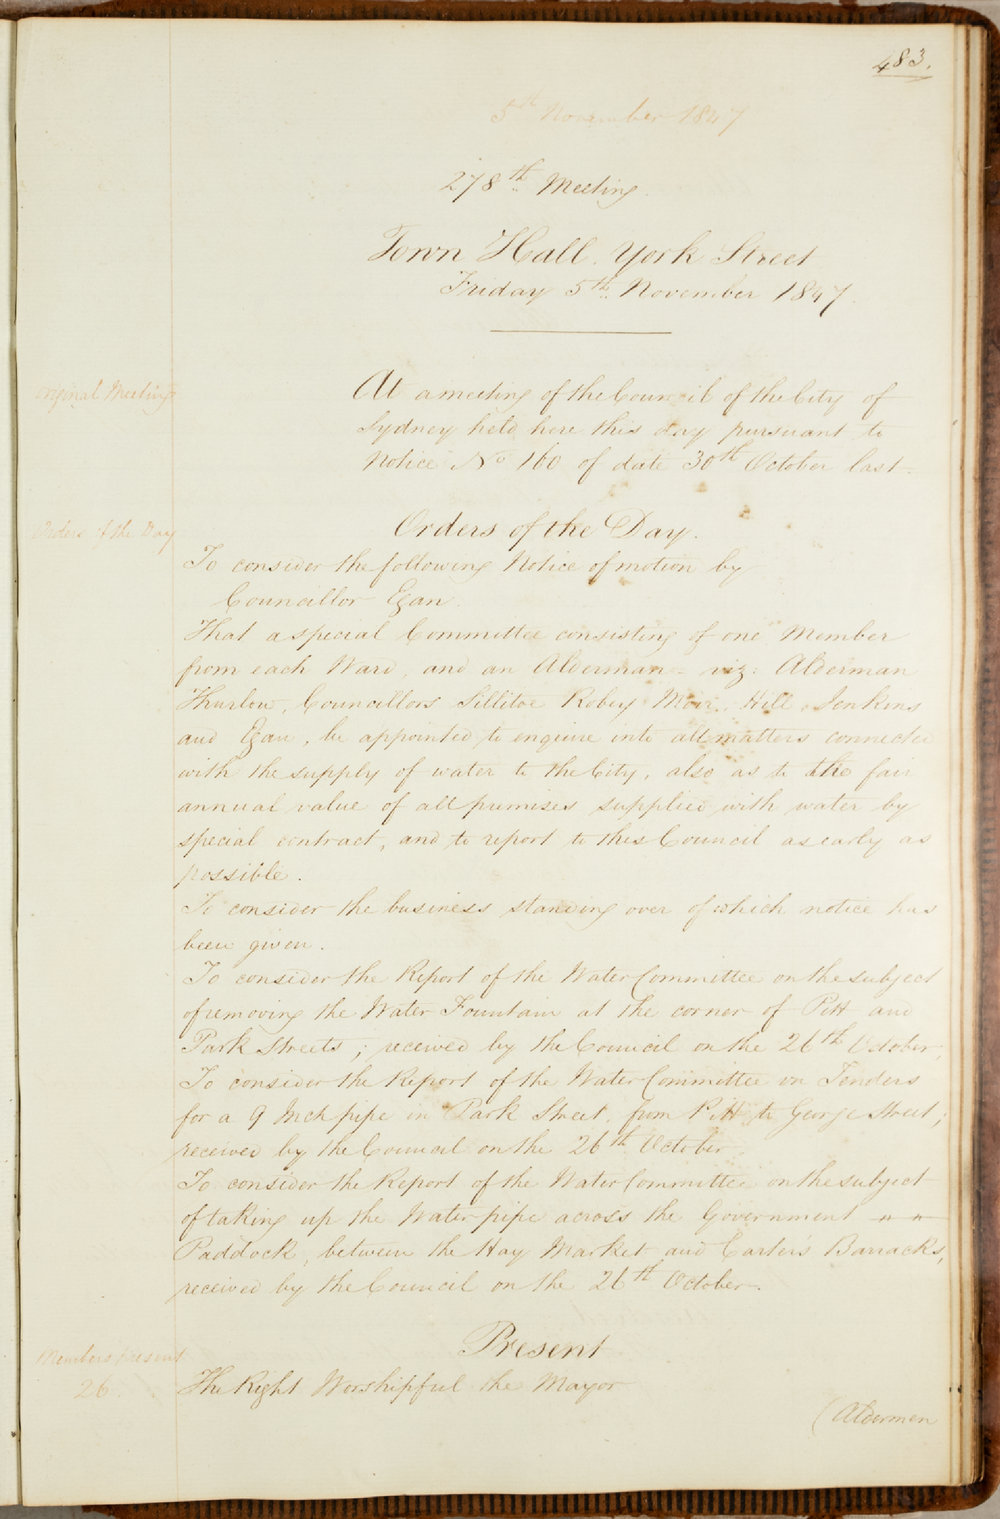 483.
5th November 1847
278th Meeting.
Town Hall. York Street
Friday 5th November 1847.
Original Meeting
At a meeting of the Council of the City of
Sydney held here this day pursuant to
Notice No 160 of date 30th October last =
Orders of the Day
Orders of the Day.
To consider the following Notice of motion by
Councillor Egan.
That a special Committee consisting of one Member
from each Ward, and an Alderman = viz: Alderman
Thurlow, Councillors Sillitoe Robey Moir, Hill Jenkins
and Egan, be appointed to enquire into all matters connected
with the supply of water to the City, also as to the fair
annual value of all premises supplied with water by
special contract, and to report to this Council as early as
possible.
To consider the business standing over of which notice has
been given.
To consider the Report of the Water Committee on the subject
of removing the Water Fountain at the corner of Pitt and
Park Streets; received by the Council on the 26th October,
To consider the Report of the Water Committee on Tenders
for a 9 Inch pipe in Park Street, from Pitt to George Street;
received by the Council on the 26th October
To consider the Report of the Water Committee on the subject
of taking up the Water pipe across the Government " "
Paddock, between the Hay Market and Carter's Barracks,
received by the Council on the 26th October.
Present
Members present
26.
The Right Worshipful the Mayor
(Aldermen